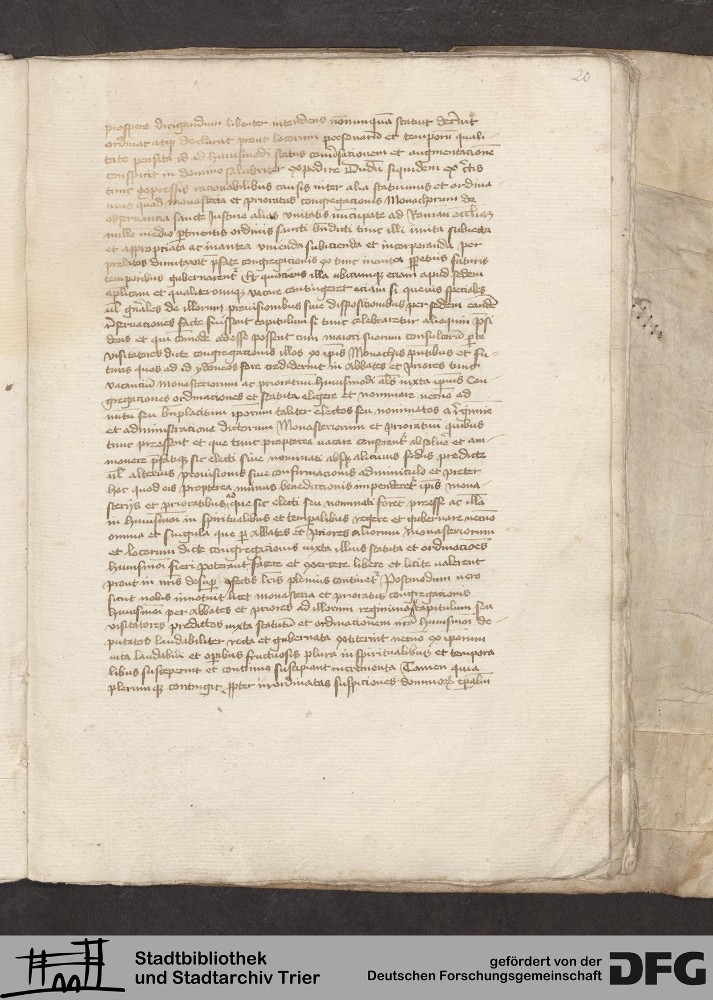 20
prospere dirigendum libenter intendens nonnunqua statuit decernit
ordinat atqz declarat prout locorum personarum et temporu quali-
tate pensata id ad huiusmodi status conversacionem et augmentacione
conspicit in domino salubriter expedire Dudu siquidem ex certis
tunc expressis racionabilibus causis inter alia statuimus et ordina
uimus quod monasteria et prioratus congregacionis Monachorum de
observancia sancte Justine alias unitatis nuncupate ad Romana ecclesia
nullo medio ptinentis ordinis sancti bndicti tunc illi unita subiecta
et appropriata ac inantea unienda subicienda et incorporanda per
prelatos dumtaxat pfate congregacionis ex tunc inantea ppetuis futuris
temporibus gubernarent Et quociens illa ubicumqz eciam apud sedem
aplicam et qualitercumqz vacare contingeret eciam si quevis speciales
ul gnales de illorum provisionibus sive disposicionibus per sedem eande
reservaciones facte fuissent capitulum si tunc celebraretur alioquin psi
dens et qui comode adesse possent cum maiori suorum consultoru pte
visitatores dicte congregacionis illos ex ipsis Monachis pntibus et fu-
turis quos ad id ydoneos fore crediderint in Abbates et Priores tunc
vacanciu monasteriorum ac prioratuu huiusmodi als iuxta ipsius con-
gregacionis ordinaciones et statuta eligere et nominare necno ad
nutu seu bnplacitum ipsorum taliter electos seu nominatos a regimie
et administracione dictorum Monasteriorum et prioratuu quibus
tunc preessent et que tunc propterea vacare censerent absolue et am-
monere pfatiqz sic electi sive nominati absqz alicuius sedis predicte
ul alterius provisionis sive confirmacionis adminiculo et preter
hoc quod eis propterea munus benediccionis impenderet ipsis mona
sterijs et prioratibus ad que sic electi seu nominati foret preesse ac illa
in huiusmoi in spiritualibus et temporalibus regere et gubernare necno
omnia et singula que p Abbates et Priores aliorum Monasteriorum
et locorum dicte congregacionis iuxta illius statuta et ordinacioes
huiusmoi fieri poterant facere et exercere libere et licite valerent
prout in nris desup confectis lris plenius continet Postmodum vero
sicut nobis innotuit licet monasteria et prioratus congregacionis
huiusmoi per Abbates et priores ad illorum regimina capitulum seu
visitatores predictos iuxta statutu et ordinacionem nram huiusmoi de-
putatos laudabiliter recta et gubernata extiterint necno ex ipsorum
vita laudabili et opibus fructuosis plura in spiritualibus et tempora
libus susceperint et continuo suscipiant incrementa Tamen quia
plerumqz contingit ppter inordinatas suspiciones dominorz epaliu
Stadtbibliothek
und Stadtarchiv Trier
gefördert von der
Deutschen Forschungsgemeinschaft
DFG